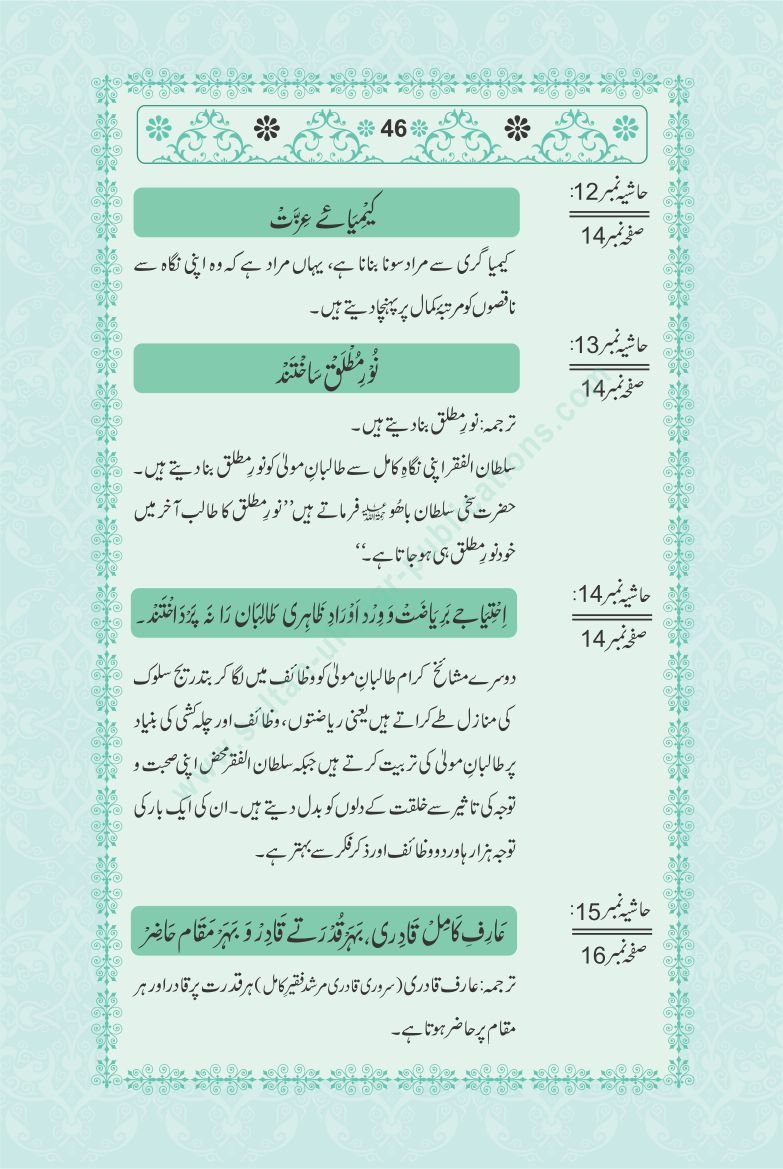 46
حاشیہ نمبر 12:
صفحہ نمبر 14
کِیْمِیَائے عِزَّتْ
کیمیا گری سے مراد سونا بنانا ہے، یہاں مراد ہے کہ وہ اپنی نگاہ سے
ناقصوں کو مرتبۂ کمال پر پہنچا دیتے ہیں۔
حاشیہ نمبر 13:
صفحہ نمبر 14
نُوْرِ مُطْلَقْ سَاخْتَنْد
ترجمہ: نورِ مطلق بنا دیتے ہیں۔
سلطان الفقر اپنی نگاہِ کامل سے طالبانِ مولیٰ کو نورِ مطلق بنا دیتے ہیں۔
حضرت سخی سلطان باھُو رحمۃ اللہ علیہ فرماتے ہیں ’’نورِ مطلق کا طالب آخر میں
خود نورِ مطلق ہی ہو جاتا ہے۔‘‘
حاشیہ نمبر 14:
صفحہ نمبر 14
اِحْتِیَاجے بَرِیَاضَتْ وَ وِرْد اَوْرَادِ ظَاہِری طَالِبَان رَا نَہ پَرْدَاخْتَنْد۔
دوسرے مشائخ کرام طالبانِ مولیٰ کو وظائف میں لگا کر بتدریج سلوک
کی منازل طے کراتے ہیں یعنی ریاضتوں، وظائف اور چلہ کشی کی بنیاد
پر طالبانِ مولیٰ کی تربیت کرتے ہیں جبکہ سلطان الفقر محض اپنی صحبت و
توجہ کی تاثیر سے خلقت کے دلوں کو بدل دیتے ہیں۔ ان کی ایک بار کی
توجہ ہزار ہا ورد و وظائف اور ذکر فکر سے بہتر ہے۔
حاشیہ نمبر 15:
صفحہ نمبر 16
عَارِفِ کَامِلْ قَادِری، بَہَرْ قُدْرَتے قَادِرْ وَ بَہَرْ مَقَام حَاضِرْ
ترجمہ: عارف قادری (سروری قادری مرشد فقیرِ کامل) ہر قدرت پر قادر اور ہر
مقام پر حاضر ہوتا ہے۔